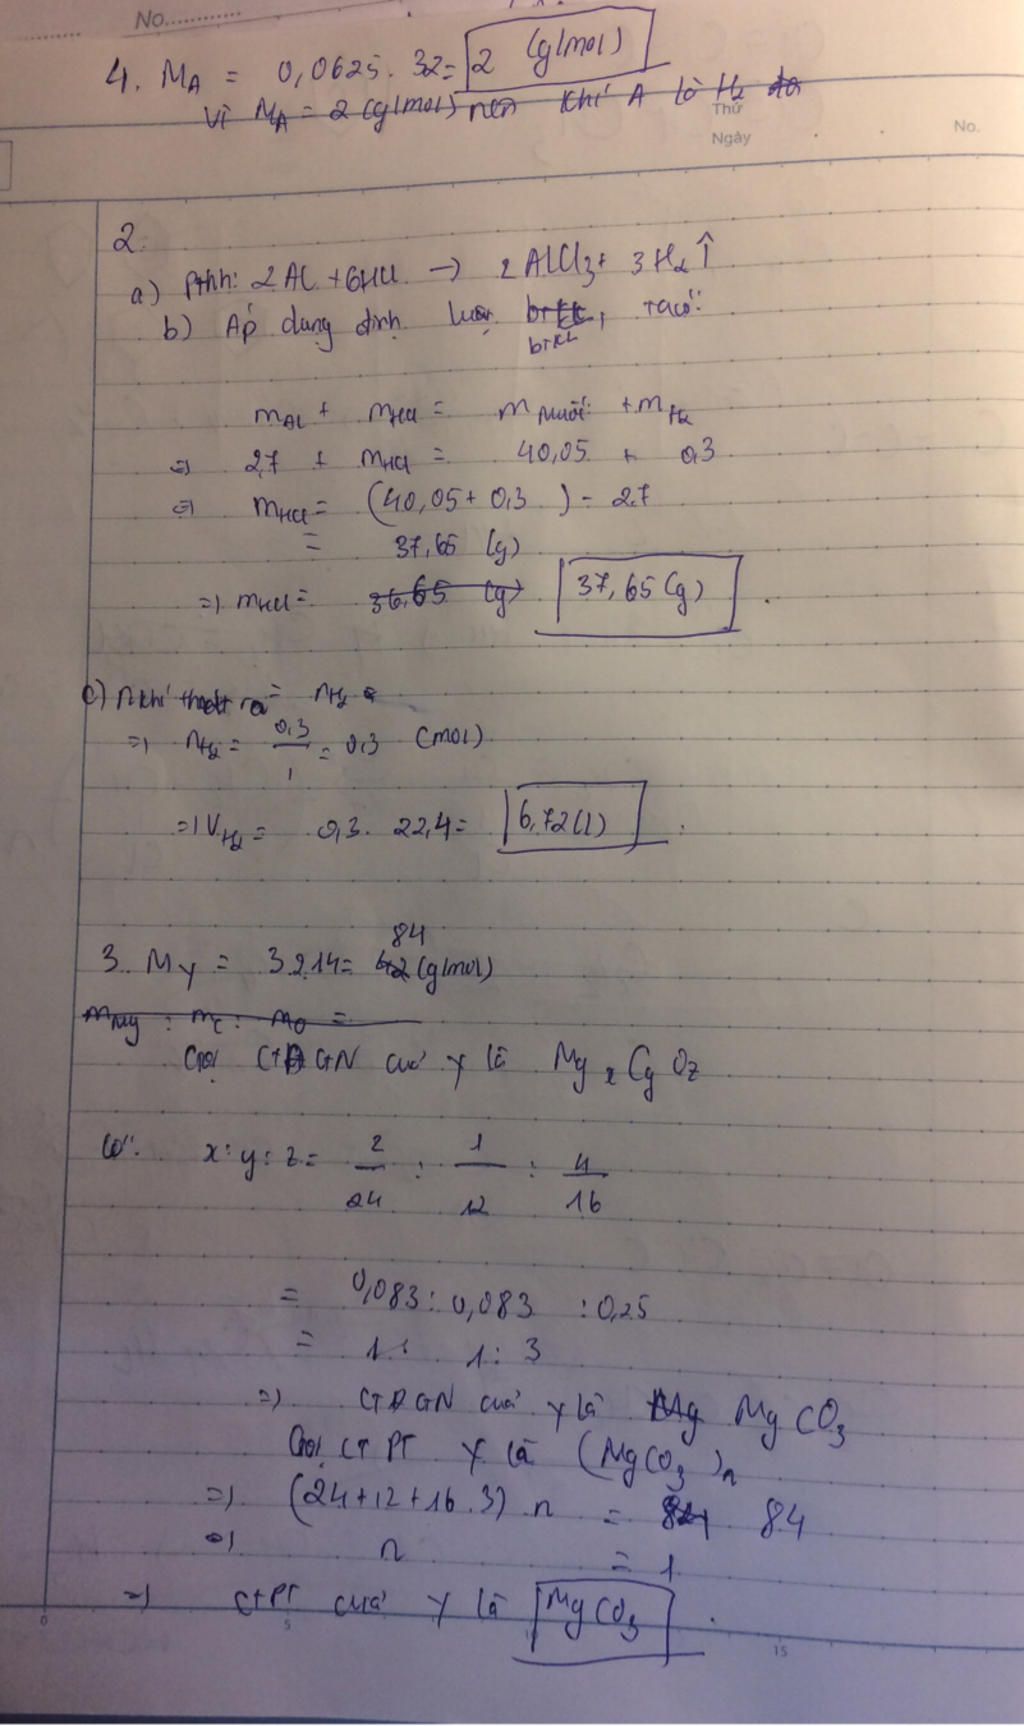 No.............
4. MA = 0,0625. 32= 2 (g/mol)
Vì MA = 2 (g/mol) nên khí A là H2
Thứ
Ngày
No.
2.
a) Pthh: 2Al + 6HCl → 2AlCl3 + 3H2↑
b) Áp dụng định luật btkl, ta có:
mAl + mHCl = mmuối + mH2
=> 2,7 + mHCl = 40,05 + 0,3
=> mHCl = (40,05+ 0,3 ) - 2,7
= 37,65 (g)
=> mHCl = 36,65 (g) 37,65 (g)
c) nkhí thoát ra = nH2
=> nH2 = 0,3/1 = 0,3 (mol)
=> VH2 = 0,3. 22,4= 6,72 (l)
84
3. MY = 3 2.14= 42 (g/mol)
mMg : mC : mO =
Gọi CTĐGN của Y là MgxCyOz
Có: x:y:z= 2/24 : 1/12 : 4/16
= 0,083 : 0,083 : 0,25
= 1: 1: 3
=> CTĐGN của Y là Mg MgCO3
Gọi CTPT Y là (MgCO3)n
=> (24+12+16.3) n = 84 84
=> n = 1
=> CTPT của Y là MgCO3
0 5 15